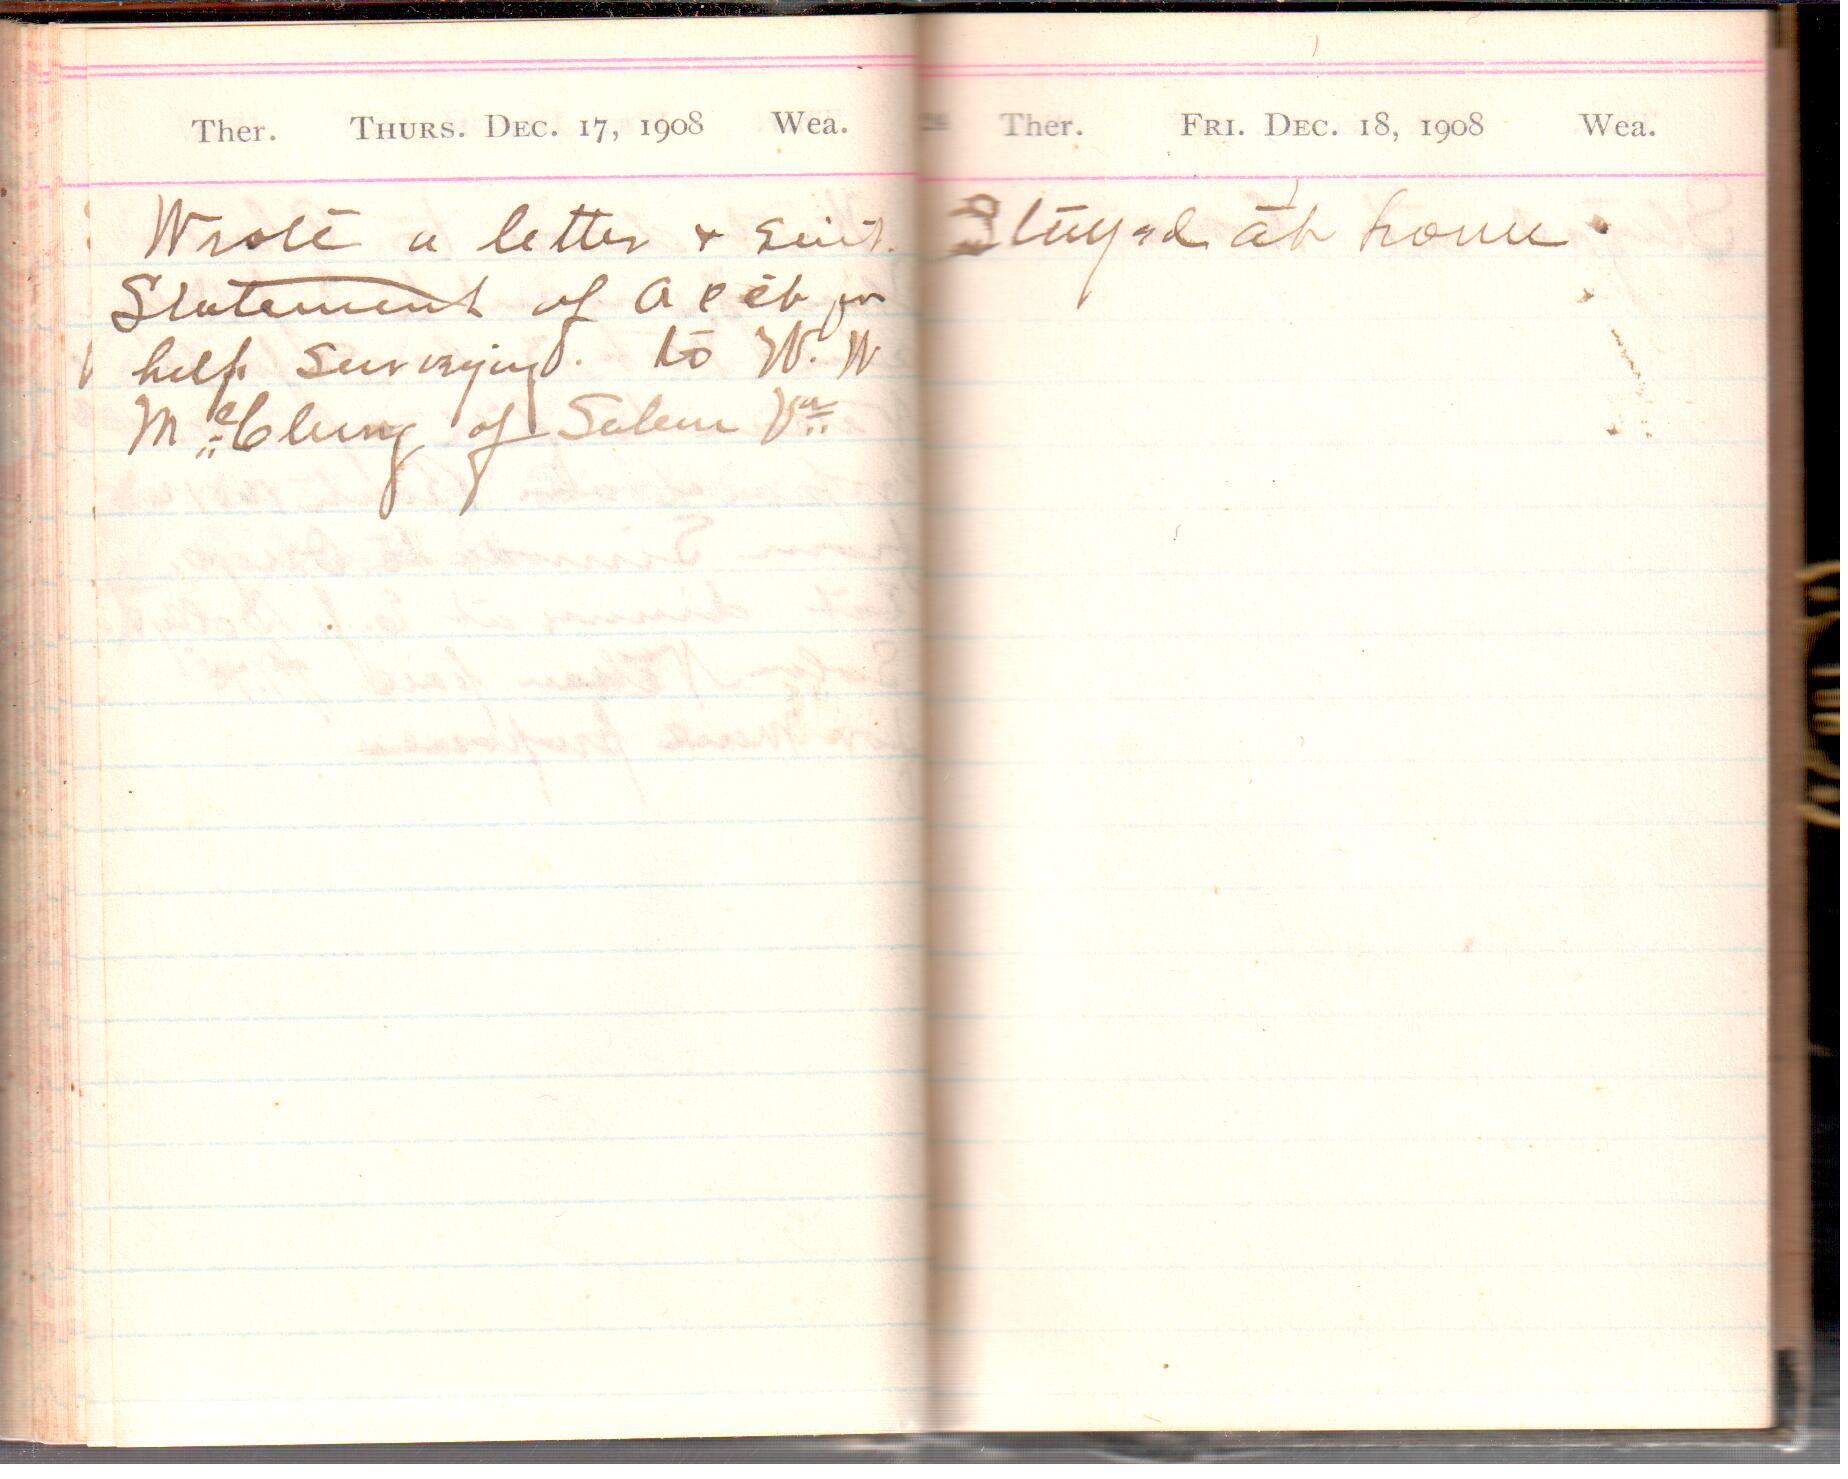 Ther. Thurs. Dec. 17, 1908 Wea.
Wrote a letter & sent
Statement of acct for
help surveying. to W. W
McClung of Salem Va
Ther. Fri. Dec. 18, 1908 Wea.
Stayed at home